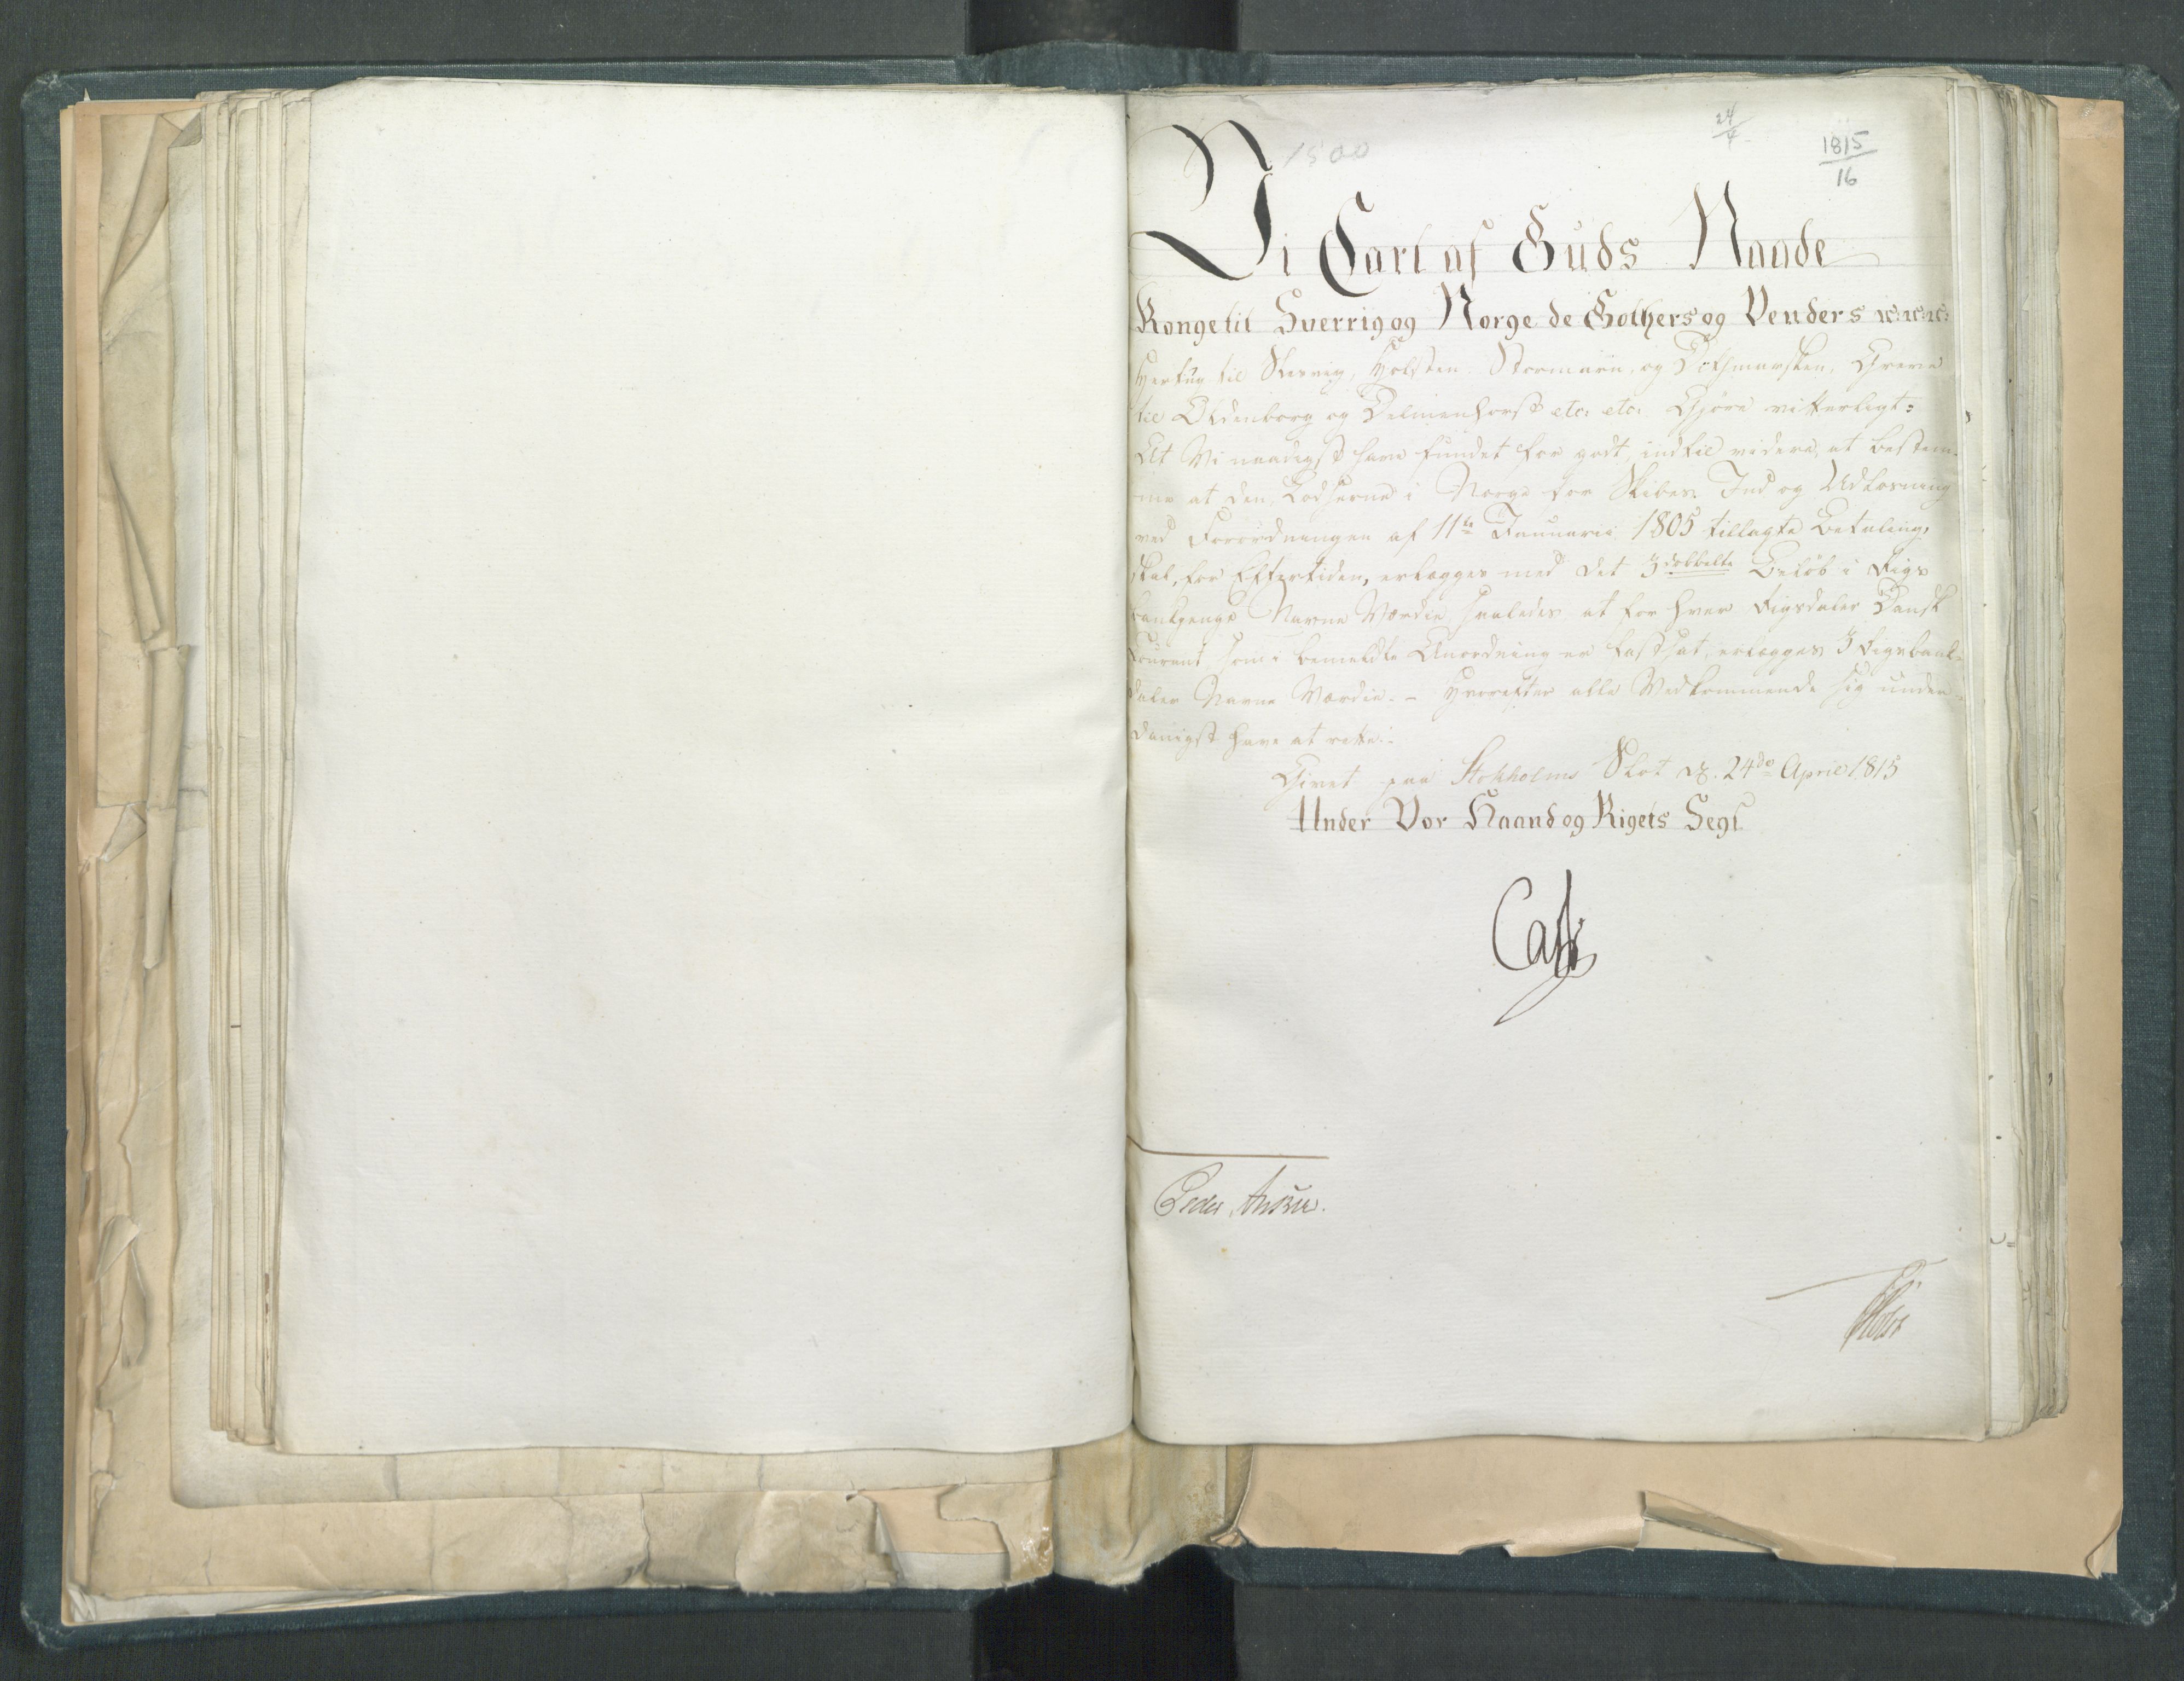 1500
24/4
1815/16
Vi Carl af Guds Naade
Konge til Sverrig og Norge de Gothers og Venders ꝛc: ꝛc: ꝛc:
Hertug til Slesvig, Holsten, Stormarn, og Ditmarsken, Greve
til Oldenborg og Delmenhorst etc: etc: Gjøre vitterligt:
At Vi naadigst have fundet for godt, indtil videre, at bestem-
me at den Lodserne i Norge for Skibes Ind og Udlosning
ved Forordningen af 11te Januarii 1805 tillagte Betaling,
skal, for Eftertiden, erlægges med det 3dobbelte Beløb i Rigs
bankpenge Navne Værdie saaledes at for hver Rigsdaler Dansk
Courant som i bemeldte Anordning er fastsat, erlægges 3 Rigsbank-
daler Navne Værdie. - Hvorefter alle Vedkommende sig under-
danigst have at rette.
Givet paa Stokholms Slot d. 24de April 1815
Under Vor Haand og Rigets Segl.
Carl
Peder Anker.